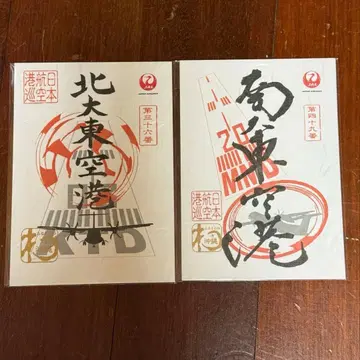 JAL
日本
航空
港巡
北大東空港
KTD
JAL
第四十九番
南大東空港
MMD
日本
航空
港巡